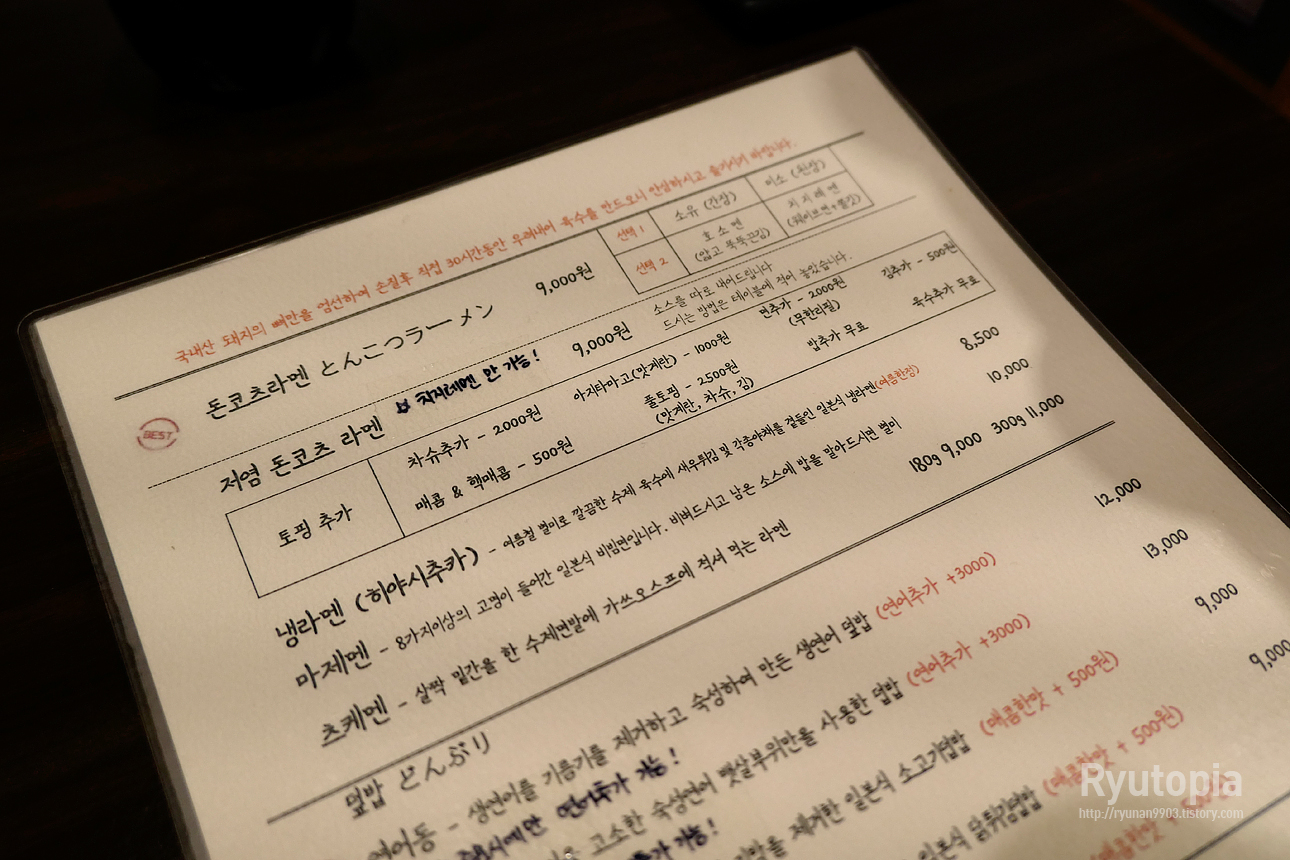 국내산 돼지의 뼈만을 엄선하여 손질후 직접 30시간동안 우려내어 육수를 만드오니 안심하시고 즐기시기 바랍니다.
BEST
돈코츠라멘 とんこつラーメン 9,000원
선택 1 소유 (간장) 미소 (된장)
선택 2 호소멘 (얇고 뚝뚝끊김) 치지레멘 (웨이브면+쫄깃)
저염 돈코츠 라멘 치지레멘 만 가능! 9,000원
소스를 따로 내어드립니다
드시는 방법은 테이블에 적어 놓았습니다.
토핑 추가
차슈추가 - 2000원 아지타마고(맛계란) - 1000원 면추가 - 2000원 (무한리필) 김추가 - 500원
매콤 & 핵매콤 - 500원 풀토핑 - 2500원 (맛계란, 차슈, 김) 밥추가 무료 육수추가 무료
냉라멘 (히야시추카) - 여름철 별미로 깔끔한 수제 육수에 새우튀김 및 각종야채를 곁들인 일본식 냉라멘(여름한정) 8,500
마제멘 - 8가지이상의 고명이 들어간 일본식 비빔면입니다. 비벼드시고 남은 소스에 밥을 말아드시면 별미 10,000
츠케멘 - 살짝 밑간을 한 수제면발에 가쓰오스프에 적셔 먹는 라멘 180g 9,000 300g 11,000
덮밥 どんぶり
연어동 - 생연어를 기름기를 제거하고 숙성하여 만든 생연어 덮밥 (연어추가 +3000) 12,000
연어추가 가능!
고소한 숙성연어 뱃살부위만을 사용한 덮밥 (연어추가 +3000) 13,000
가능!
제거한 일본식 소고기덮밥 (매콤한맛 + 500원) 9,000
일본식 닭튀김덮밥 (매콤한맛 + 500원) 9,000
(매콤한맛 + 500원)
Ryutopia
http://ryunan9903.tistory.com